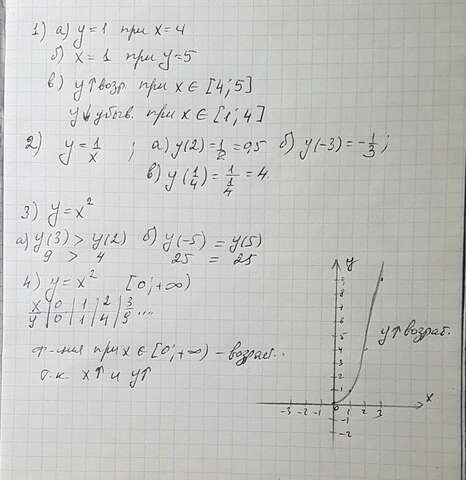 1) а) y=1 при x=4
б) x=1 при y=5
в) y↑возр. при x∈[4;5]
y↓убыв. при x∈[1;4]
2) y=1/x ; а) y(2)=1/2=0,5 б) y(-3)=-1/3;
в) y(1/4)=1/(1/4)=4.
3) y=x²
а) y(3) > y(2) б) y(-5) = y(5)
9 > 4 25 = 25
4) y=x² [0;+∞)
x | 0 | 1 | 2 | 3
y | 0 | 1 | 4 | 9 ...
ф-ния при x∈[0;+∞) – возраст..
т.к. x↑ и y↑
y
9
8
7
6
5
4
3
2
1
y↑возраст.
x
-3 -2 -1 0 1 2 3
-1
-2